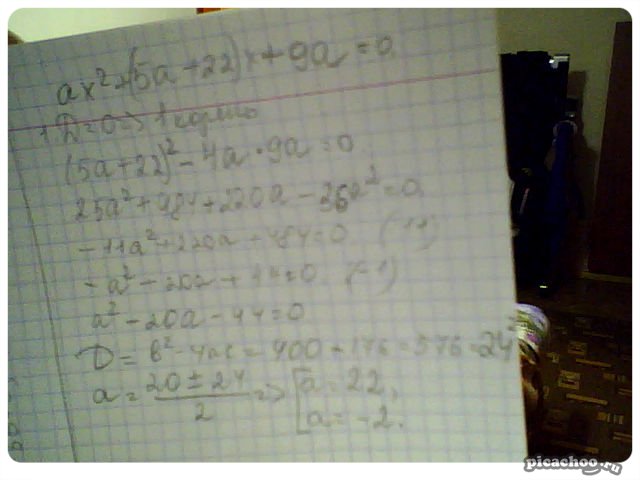 ax² + (5a + 22)x + 9a = 0.
1. D = 0 => 1 корень
(5a + 22)² - 4a · 9a = 0
25a² + 484 + 220a - 36a² = 0.
-11a² + 220a + 484 = 0. (:11)
-a² + 20a + 44 = 0. (:-1)
a² - 20a - 44 = 0
D = b² - 4ac = 400 + 176 = 576 = 24²
a = (20 ± 24)/2 => [a = 22,
a = -2.
picachoo.ru